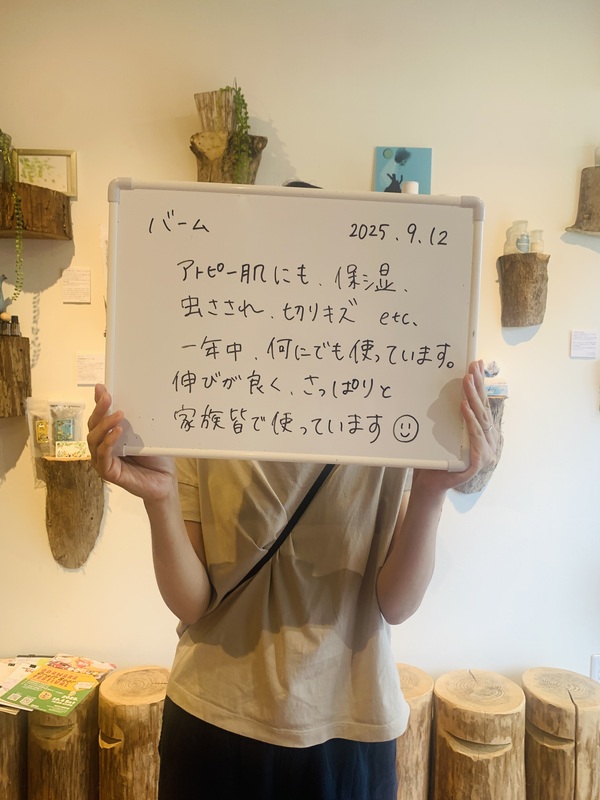 バーム 2025.9.12
アトピー肌にも、保湿、
虫さされ、切りキズ etc、
一年中、何にでも使っています。
伸びが良く、さっぱりと
家族皆で使っています